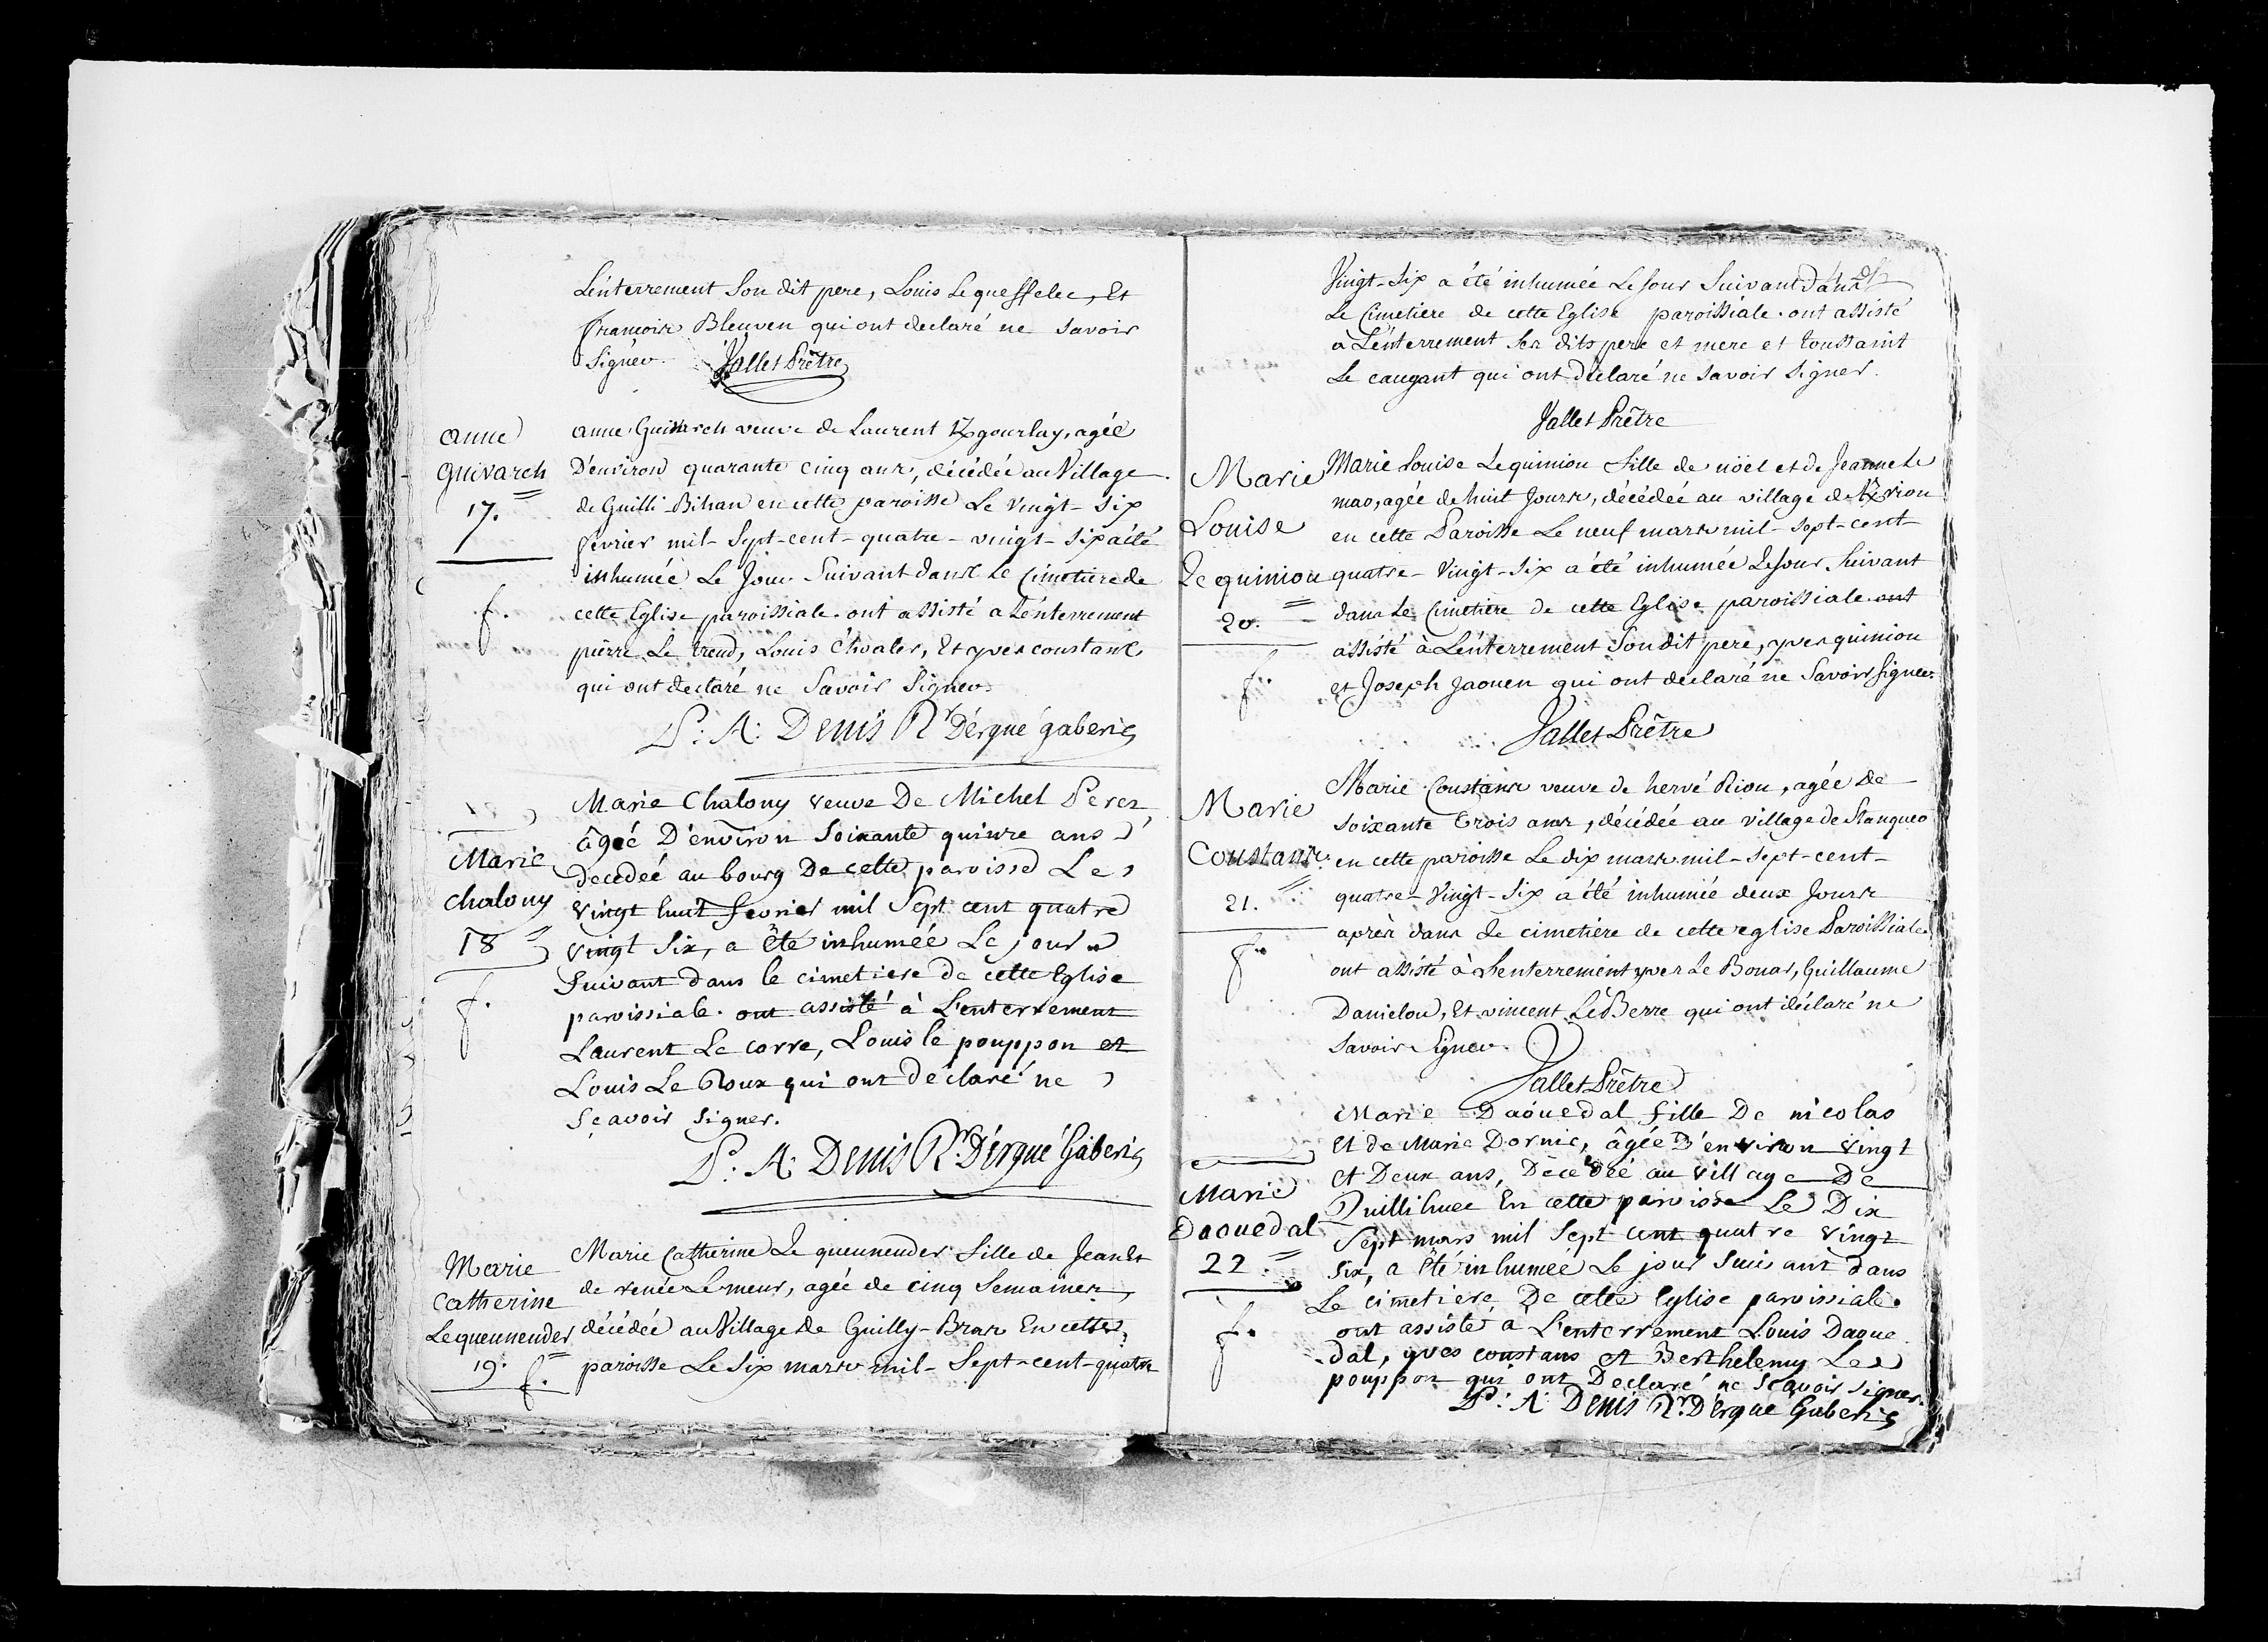 L'enterrement Son dit pere, Louis Le queffelec, Et
francoise Bleuven qui ont declaré ne Savoir
Signer. Vallet Prêtre
anne
Guivarch
17.
f.
anne Guivarch veuve de Laurent Kgourlay, agée
D'environ quarante cinq ans, décédée au Village
de Guilli-Bihan en cette paroisse Le vingt-Six
fevrier mil-Sept-cent-quatre-vingt-Six a été
inhumée Le Jour Suivant dans Le Cimetiere de
cette Eglise paroissiale. ont assisté a L'enterrement
pierre Le Louis Et yves constans
qui ont declaré ne Savoir Signer.
A: Denis Rr D'ergué gaberic
Marie
chalony
18
f.
Marie Chalony veuve De Michel Perez,
âgée D'environ Soixante quinze ans
decedée au bourg De cette paroisse Le
vingt huit fevrier mil Sept cent quatre
vingt Six, a été inhumée Le jour
Suivant dans le cimetiere de cette Eglise
paroissiale. ont assisté à L'enterrement
Laurent Le corre, Louis le pouppon et
Louis Le Roux qui ont déclaré ne
Sçavoir Signer.
A: Denis Rr. D'ergué Gaberic
Marie
Catherine
Le quennender
19. f.
Marie Catherine Le quennender fille de Jean Et
de renée Le meur, agée de cinq Semaines,
décédée au Village de Guilly-Bras En cette
paroisse Le Six mars mil-Sept-cent-quatre
Vingt-Six a été inhumée Le Jour Suivant dans
Le Cimetiere de cette Eglise paroissiale. ont assisté
à L'enterrement Ses dits pere et mere et toussaint
Le caugant qui ont déclaré ne Savoir Signer.
Vallet Prêtre
Marie
Louise
Le quiniou
20.
f.
Marie Louise Le quiniou fille de nöel et de Jeanne Le
mao, agée de huit Jours, décédée au village de Kriou
en cette Paroisse Le neuf mars mil-Sept-cent-
quatre-Vingt-Six a été inhumée Le Jour Suivant
dans Le Cimetiere de cette Eglise paroissiale. ont
assisté à L'enterrement Son dit pere, yves quiniou
et Joseph Jaouen qui ont déclaré ne Savoir Signer.
Vallet Prêtre
Marie
Coustans
21.
f.
Marie Coustans veuve de hervé Riou, agée de
Soixante trois ans, décédée au village de Stanqueo
en cette paroisse Le dix mars mil-Sept-cent-
quatre-Vingt-Six a été inhumée deux Jours
après dans Le cimetiere de cette eglise Paroissiale.
ont assisté à L'enterrement yves Le Bouar, Guillaume
Danielou, Et vincent Le Berre qui ont déclaré ne
Savoir Signer.
Vallet Prêtre
Marie
Daouedal
22.
f.
Marie Daouedal fille De nicolas
Et de Marie Dornic, âgée D'environ vingt
et Deux ans, Décédée au village De
Quillihuec En cette paroisse Le Dix
Sept mars mil Sept cent quatre vingt
Six, a été inhumée Le jour Suivant dans
Le cimetiere De cette Eglise paroissiale.
ont assisté à L'enterrement Louis Daoue
dal, yves constans et Berthelemy Le
pouppon qui ont Declaré ne Sçavoir Signer.
A: Denis Rr. D'ergué Gaberic